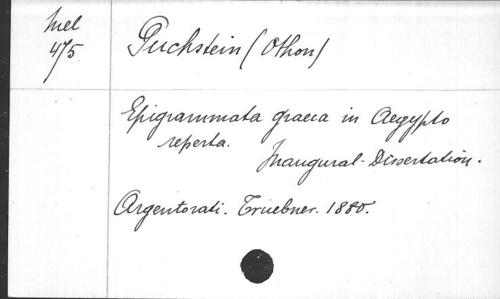 Mel
475
Puchstein (Othon)
Epigrammata graeca in Aegypto
reperta.
Inaugural-Dissertation.
Argentorati. Truebner. 1880.